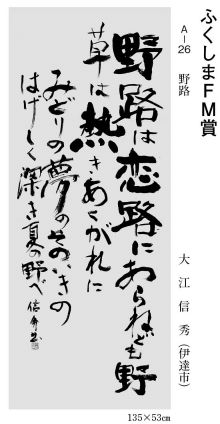 ふくしまFM賞
A-26 野路
大江信秀(伊達市)
野路は恋路にあらねども野
草は熱きあくがれに
みどりの夢のそのいきの
はげしく深き夏の野べ 信秀書
135×53cm